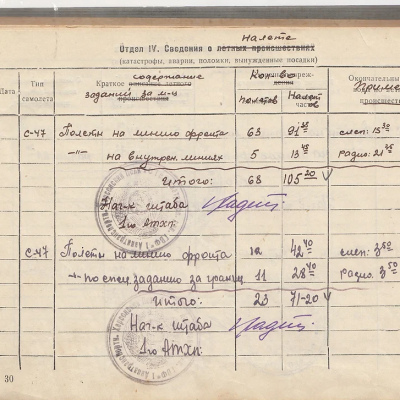 налете
Отдел IV. Сведения о летных происшествиях
(катастрофы, аварии, поломки, вынужденные посадки)
Дата Тип самолета Краткое содержание заданий за м-ц Кол-во полетов Налет часов Окончательны
С-47 Полеты на линию фронта 63 91 35 слеп: 15 30
-"- на внутрен. линиях 5 13 45 радио: 21 25
Итого: 68 105 20 V
Нач-к штаба
1го АТХп:
С-47 Полеты на линию фронта 12 42 40 слеп: 3 50
-"- по спец. заданию за границ 11 28 40 радио. 3 50
Итого: 23 71-20 V
Нач-к штаба
1го АТХп:
30